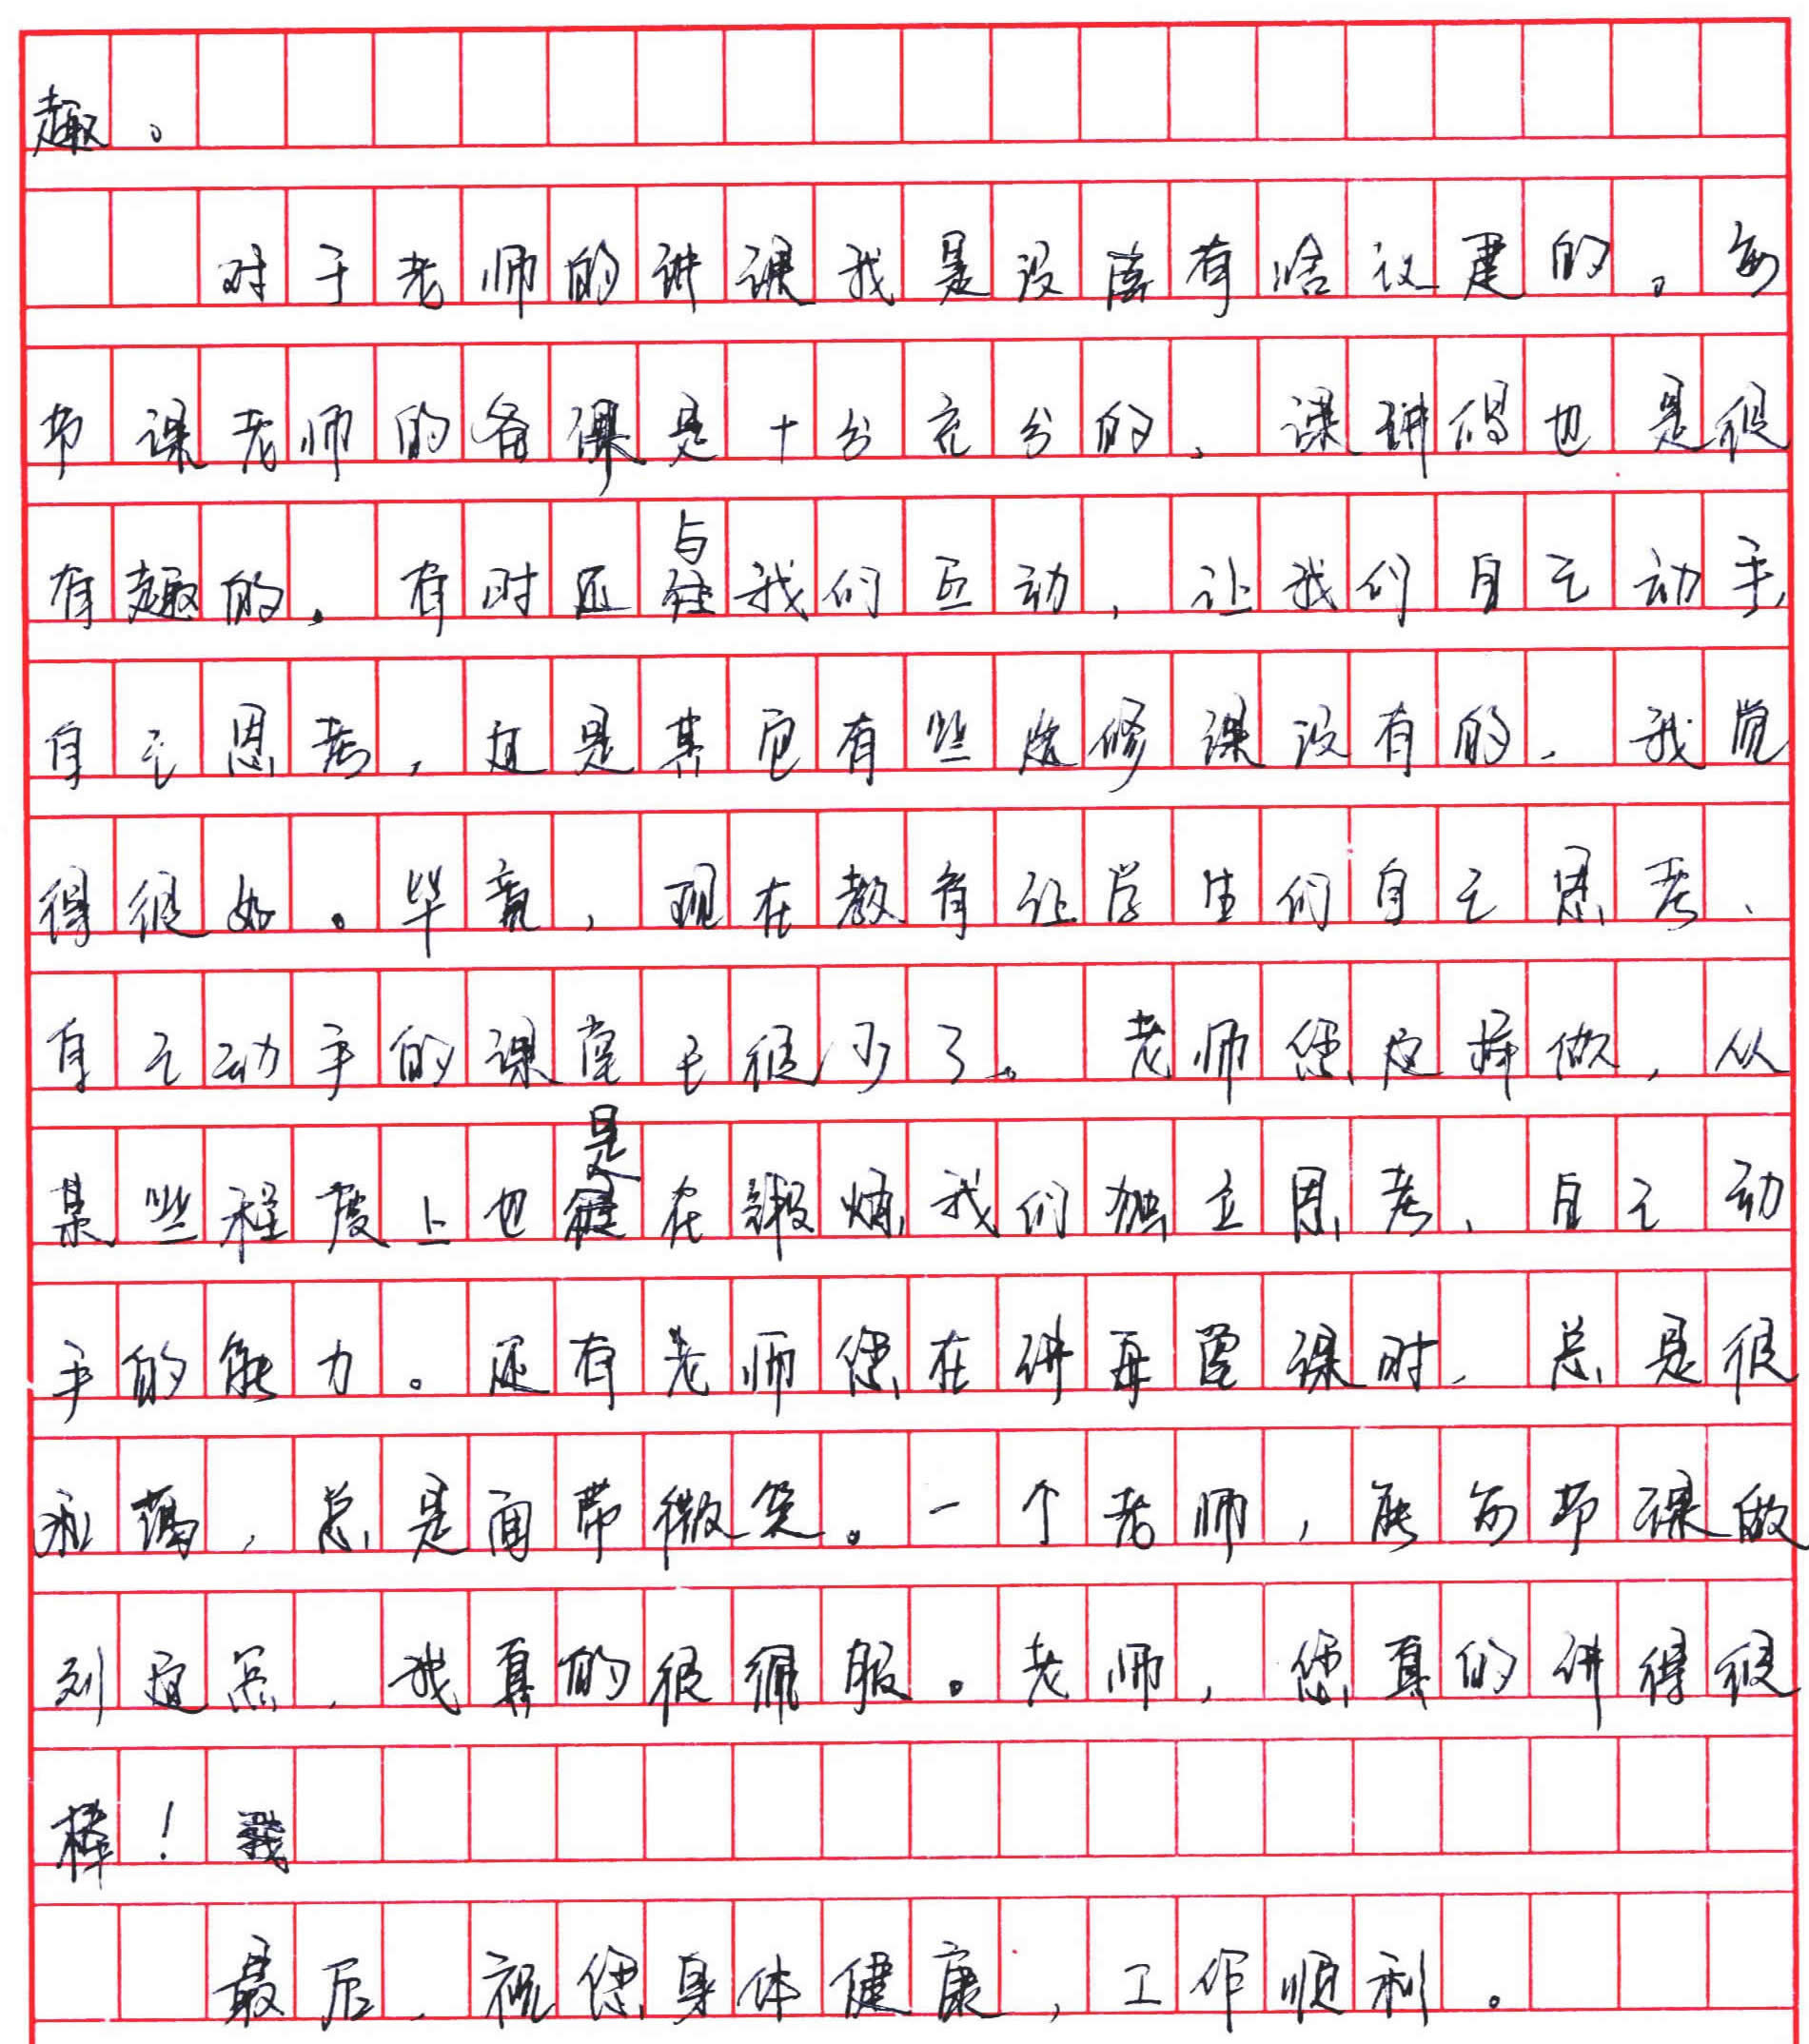 趣。
对于老师的讲课我是没有啥议建的。每
节课老师的备课是十分充分的、课讲得也是很
有趣的，有时还与我们互动，让我们自己动手，
自己思考，这是其它有些选修课没有的，我觉
得很好。毕竟，现在教育让学生们自己思考、
自己动手的课堂已很少了。老师您这样做，从
某些程度上也是在锻炼我们独立思考、自己动
手的能力。还有老师您在讲每堂课时，总是很
和蔼，总是面带微笑。一个老师，能每节课做
到这点，我真的很佩服。老师，您真的讲得很
棒！
最后，祝您身体健康，工作顺利。